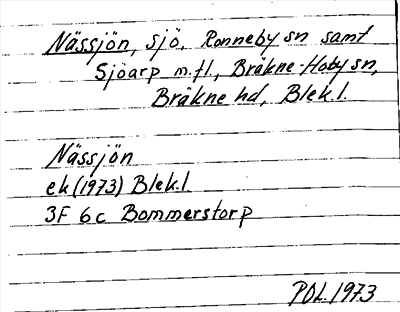 Nässjön, sjö, Ronneby sn samt
Sjöarp m.fl., Bräkne-Hoby sn,
Bräkne hd, Blek.l.
Nässjön
ek (1973) Blek.l
3F 6c Bommerstorp
POL 1973